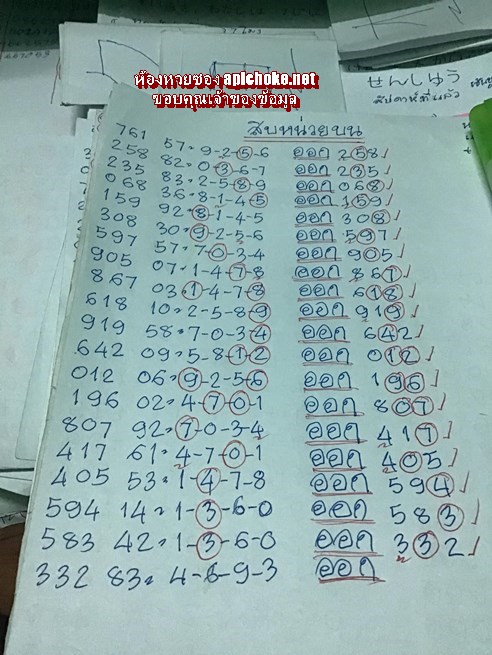 ห้องหวยซอง apichoke.net
ขอบคุณเจ้าของข้อมูล
せんしゅう
สัปดาห์ที่แล้ว
สิบหน่วยบน
761 57=9-2-5-6 ออก 258✓
258 82=0-3-6-7 ออก 235✓
235 83=2-5-8-9 ออก 068✓
068 36=8-1-4-5 ออก 159✓
159 92=8-1-4-5 ออก 308✓
308 30=9-2-5-6 ออก 597✓
597 57=7-0-3-4 ออก 905✓
905 07=1-4-7-8 ออก 867✓
867 03=1-4-7-8 ออก 618✓
618 10=2-5-8-9 ออก 919✓
919 58=7-0-3-4 ออก 642✓
642 09=5-8-1-2 ออก 012✓
012 06=9-2-5-6 ออก 196✓
196 02=4-7-0-1 ออก 807✓
807 92=7-0-3-4 ออก 417✓
417 61=4-7-0-1 ออก 405✓
405 53=1-4-7-8 ออก 594✓
594 14=1-3-6-0 ออก 583✓
583 42=1-3-6-0 ออก 332✓
332 83=4-6-9-3 ออก